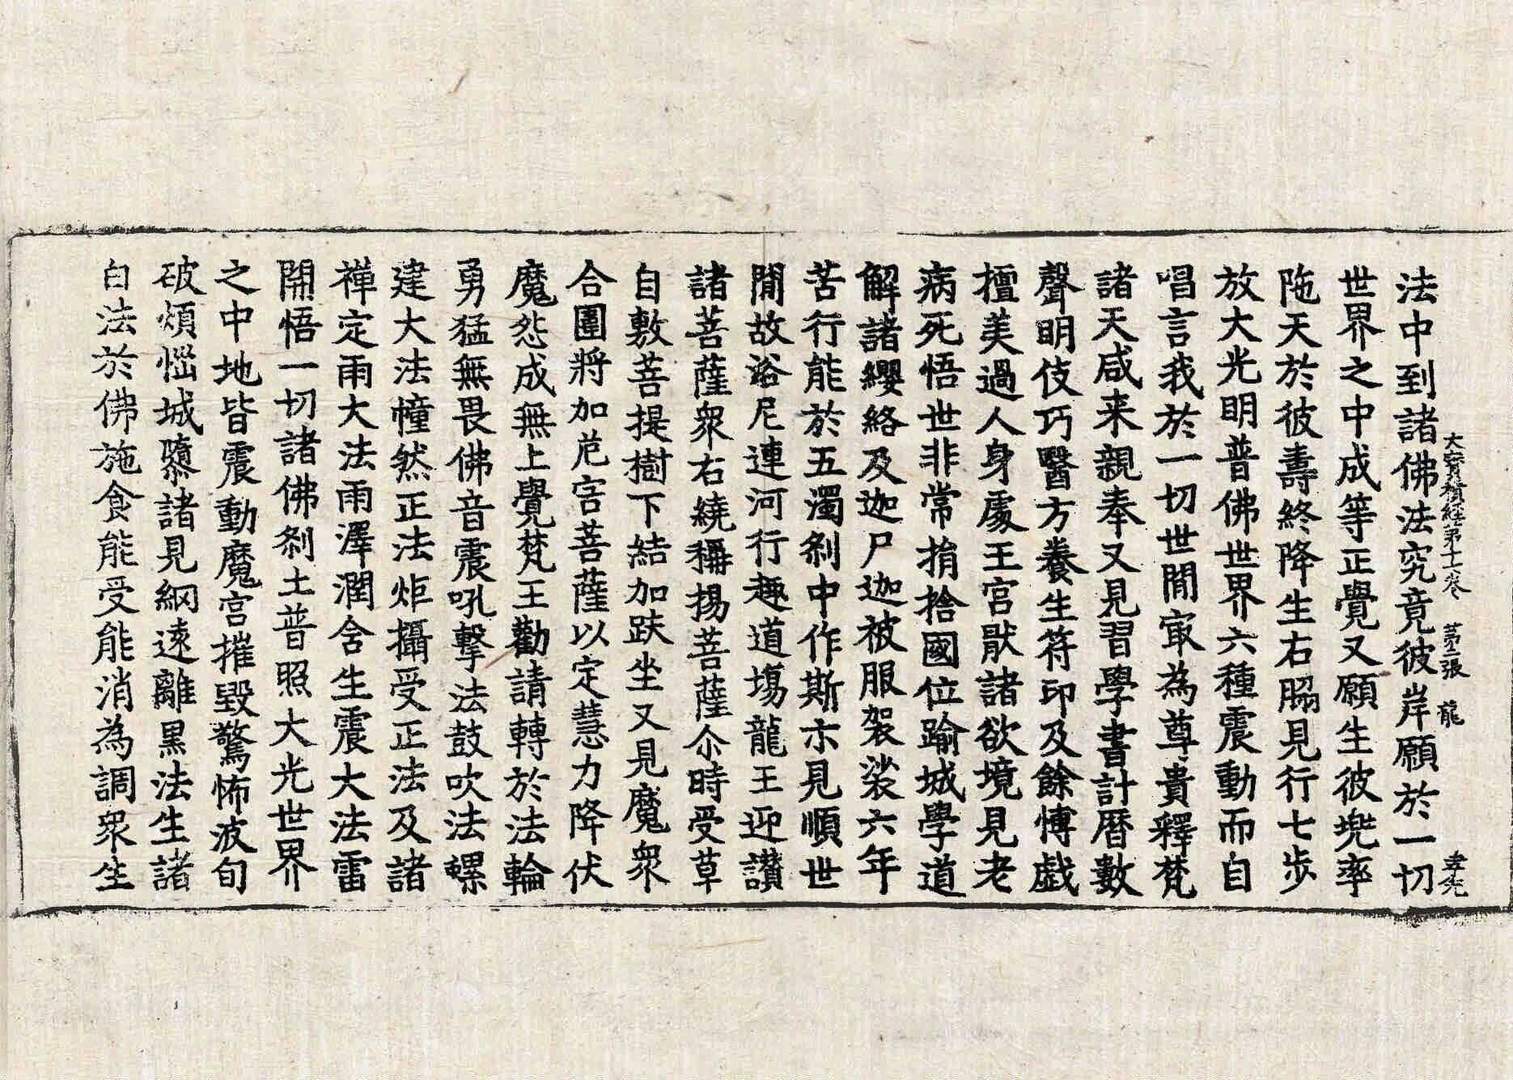 法中到諸佛法究竟彼岸願於一切
大寶積經第十七卷　第二張　龍
世界之中成等正覺又願生彼兠率
陁天於彼壽終降生右脇見行七步
放大光明普佛世界六種震動而自
唱言我於一切世間㝡為尊貴釋梵
諸天咸来親奉又見習學書計曆數
聲明伎巧醫方養生符印及餘愽戯
擅美過人身處王宮猒諸欲境見老
病死悟世非常捐捨國位踰城學道
解諸纓絡及迦尸迦被服袈裟六年
苦行能於五濁刹中作斯示見順世
閒故浴尼連河行趣道塲龍王迎讃
諸菩薩衆右繞稱揚菩薩尒時受草
自敷菩提樹下結加趺坐又見魔衆
合圍將加危害菩薩以定慧力降伏
魔怨成無上覺梵王勸請轉於法輪
勇猛無畏佛音震吼擊法鼓吹法螺
建大法幢然正法炬攝受正法及諸
禪定雨大法雨澤潤含生震大法雷
開悟一切諸佛刹土普照大光世界
之中地皆震動魔宮摧毀驚怖波旬
破煩惱城隳諸見網遠離黒法生諸
白法於佛施食能受能消為調衆生